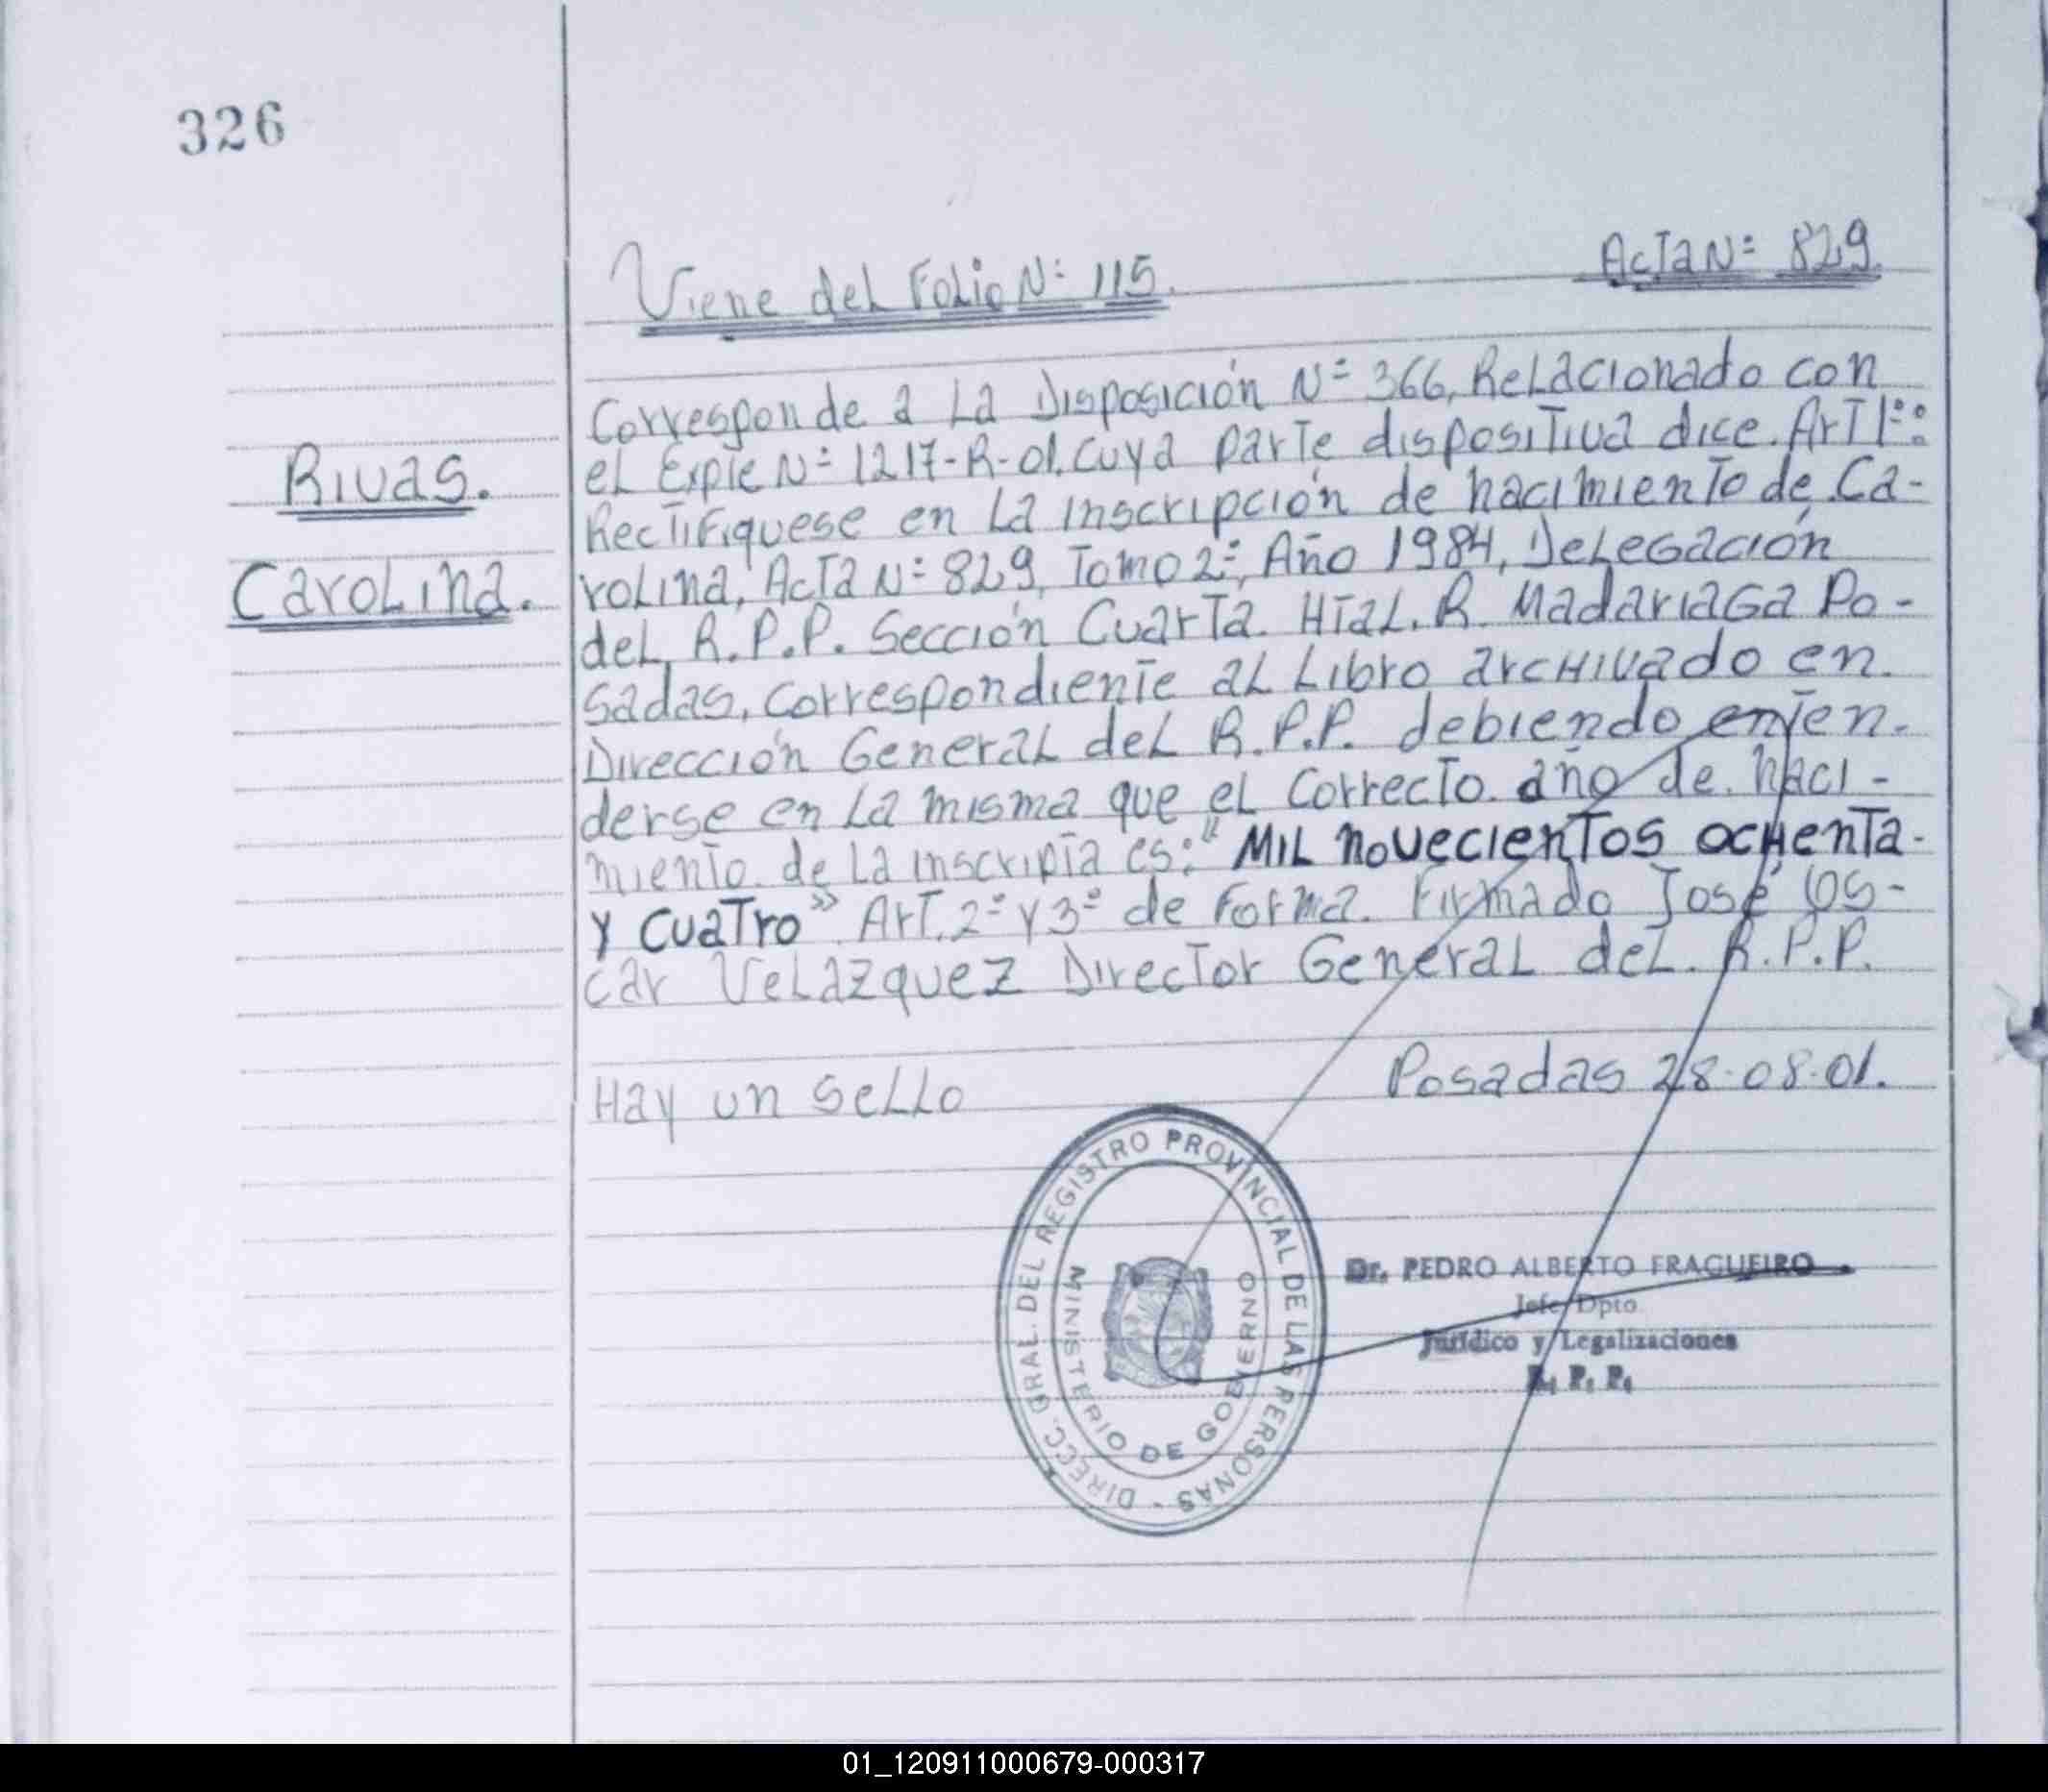 326
Viene del Folio N= 115.
Acta N= 829.
Rivas.
Carolina.
Corresponde a la Disposición N= 366, Relacionado con
el Expte N= 1217-R-01. cuya parte dispositiva dice. Art 1=:
Rectifiquese en la inscripción de nacimiento de Ca-
rolina, Acta N= 829, Tomo 2=, Año 1984, Delegación
del R.P.P. Sección Cuarta. Htal. R. Madariaga Po-
sadas, correspondiente al Libro archivado en
Dirección General del R.P.P. debiendo enten-
derse en la misma que el correcto año de naci-
miento de la inscripta es: "Mil novecientos ochenta-
y cuatro" Art. 2= y 3= de forma. Firmado José Os-
car Velazquez Director General del R.P.P.
Hay un sello
Posadas 28-08-01.
DIRECC. GRAL. DEL REGISTRO PROVINCIAL DE LAS PERSONAS -
MINISTERIO DE GOBIERNO
Dr. PEDRO ALBERTO FRAGUEIRO
Jefe Dpto
Jurídico y Legalizaciones
R. P. P.
01_120911000679-000317